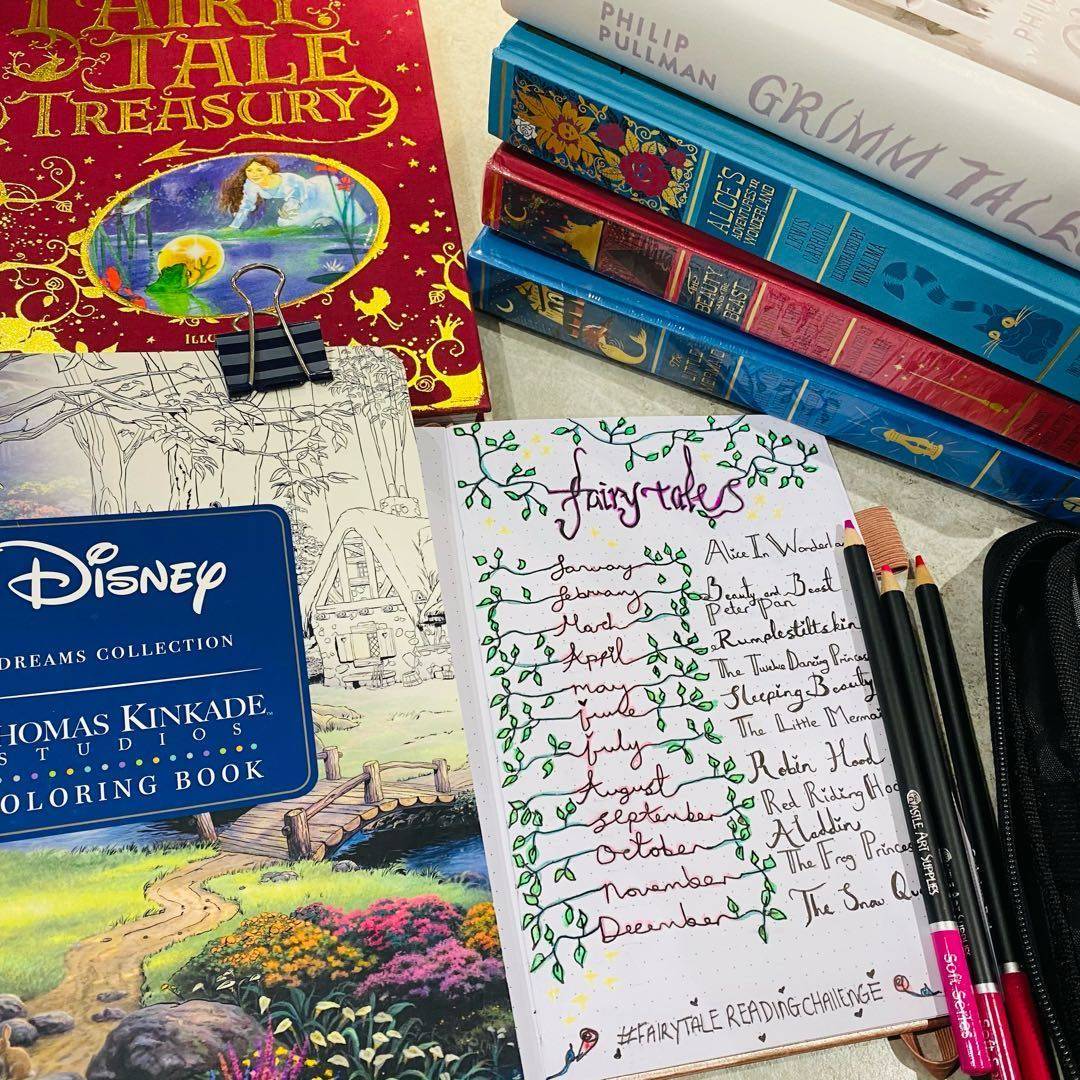 FAIRY
TALE
TREASURY
PHILIP
PULLMAN
GRIMM TALES
ALICE'S
ADVENTURES IN
WONDERLAND
LEWIS
CARROLL
ILLUSTRATED BY
MINALIMA
THE
BEAUTY
AND THE
BEAST
THE
LITTLE
MERMAID
DISNEY
DREAMS COLLECTION
THOMAS KINKADE
STUDIOS
COLORING BOOK
fairy tales
January Alice In Wonderla
february Beauty and Beast
March Peter Pan
April Rumplestiltskin
may The Twelve Dancing Princess
june Sleeping Beauty
july The Little Mermai
August Robin Hood
September Red Riding Hoo
October Aladdin
November The Frog Princess
December The Snow Qu
#FAIRYTALE READING CHALLENGE
CASTLE ART SUPPLIES
Soft Series
Soft